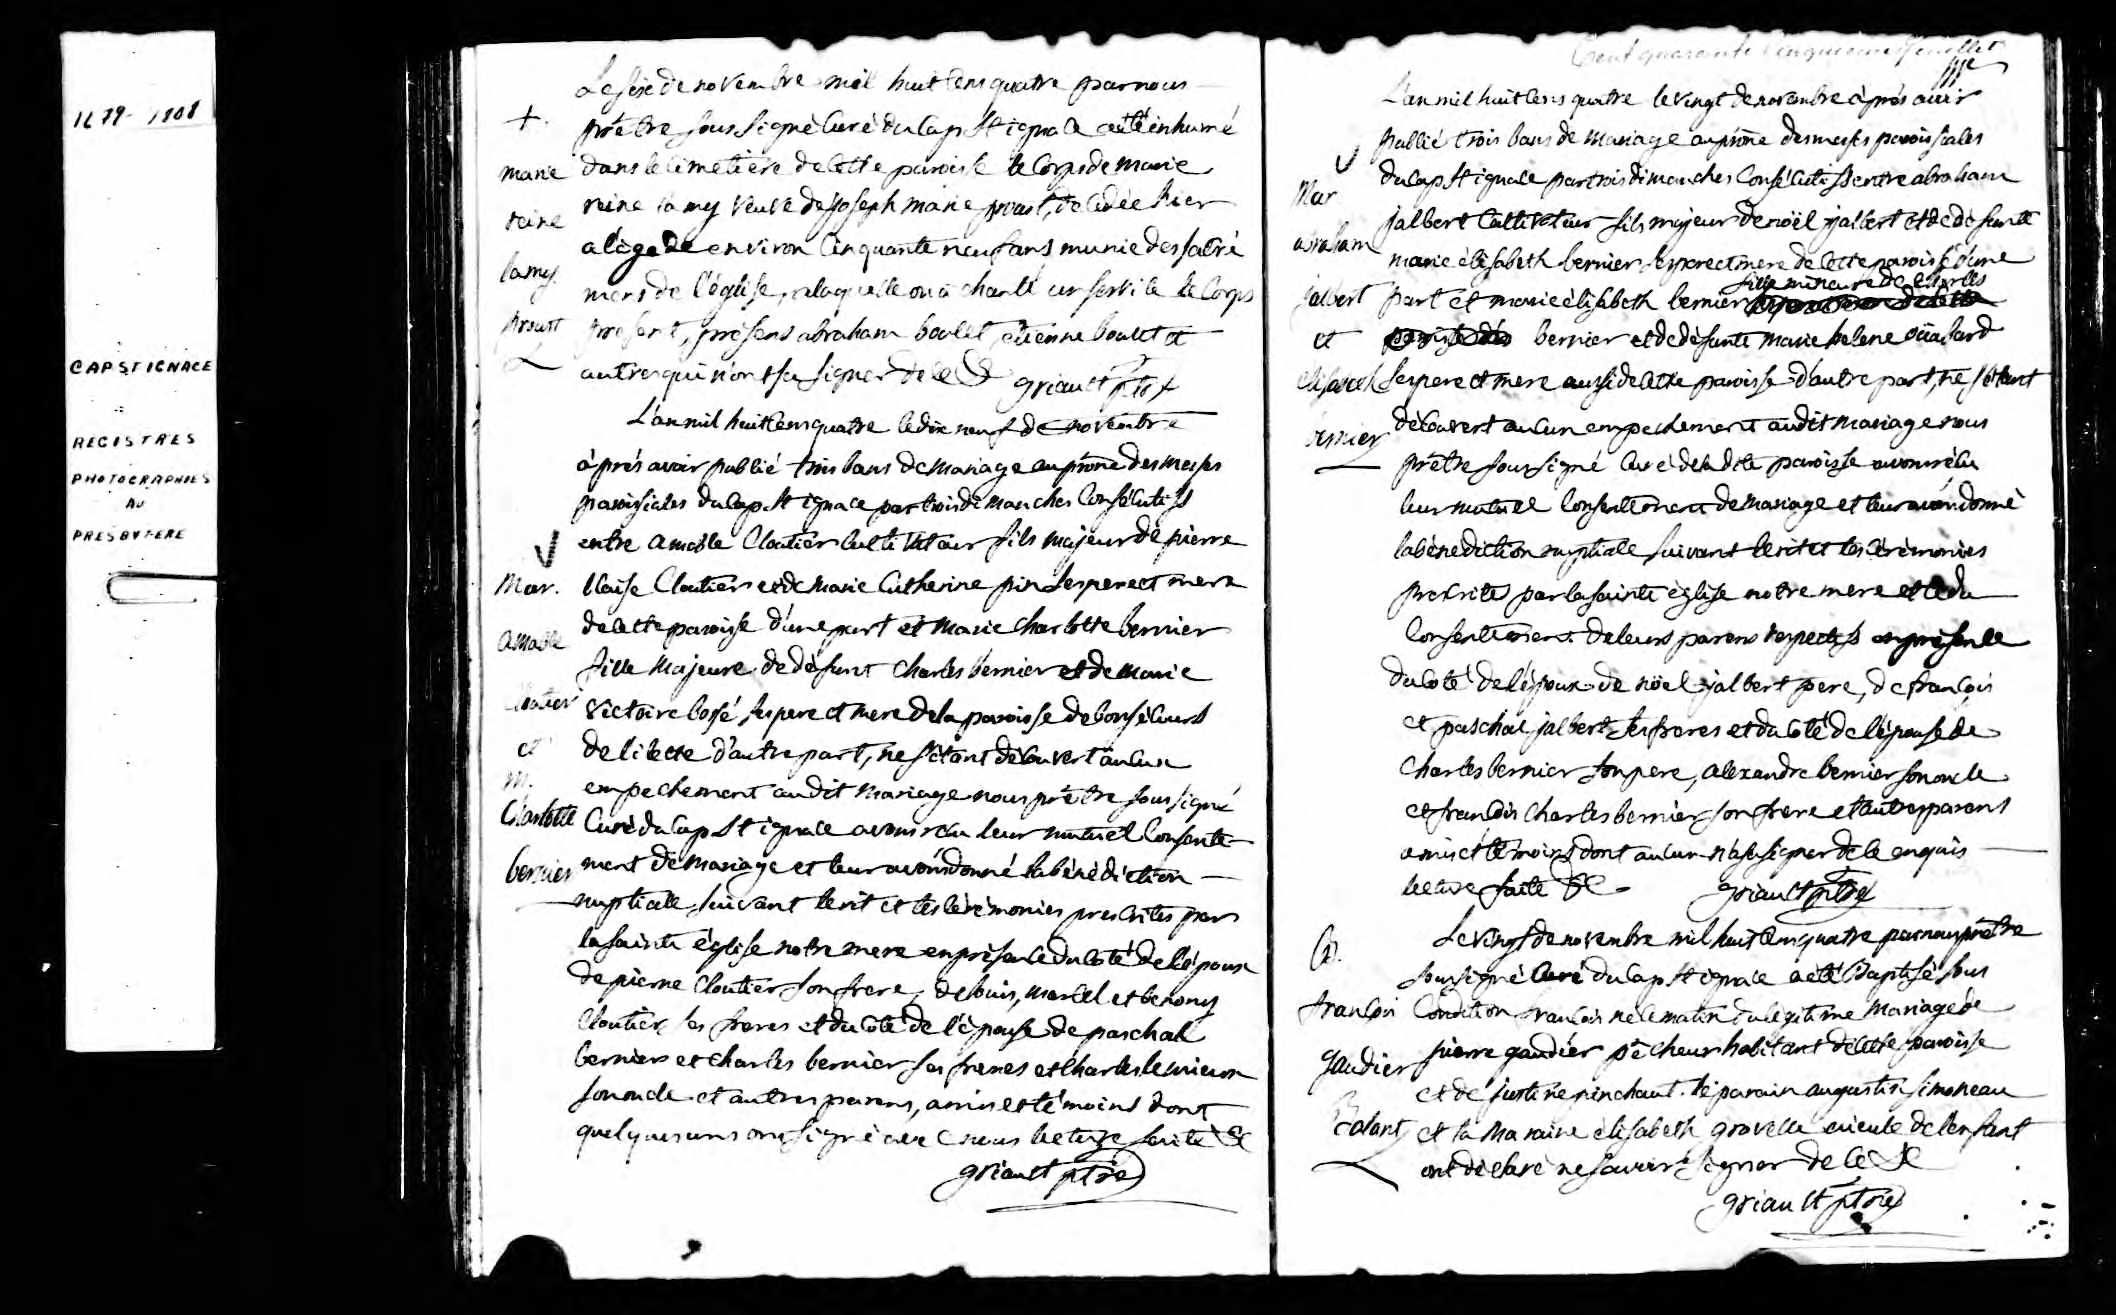 1679-1808
CAP ST IGNACE
REGISTRES
PHOTOGRAPHIES
AU
PRESBYTERE
Le seize de novembre mil huit cens quatre par nous
prêtre soussigné curé du Cap St ignace a été inhumé
dans le cimetière de cette paroisse le corps de marie
reine lamy veuve de joseph marie proust, decedée hier
a l'age de environ cinquante neuf ans munie des sacré
mens de l'église, a laquelle on a chanté un service le corps
present, présens abraham boulet, etienne boulet et
autres qui n'ont su signer de ce &c griault ptre
+.
marie
reine
lamy
proust
L'an mil huit cens quatre le dix neuf de novembre
après avoir publié trois bans de mariage au prône des messes
paroissiales du Cap St ignace par trois dimanches consécutifs
entre amable Cloutier cultivateur fils majeur de pierre
blaise Cloutier et de marie Catherine pin ses pere et mere
de cette paroisse d'une part et marie charlotte bernier
fille majeure de défunt Charles bernier et de marie
victoire bossé ses pere et mere de la paroisse de bonsecours
de l'ilette d'autre part, ne s'étant découvert aucun
empechement audit mariage nous prêtre soussigné
Curé du Cap St ignace avons reçu leur mutuel consente-
ment de mariage et leur avons donné la bénédiction
nuptiale suivant le rit et les cérémonies prescrites par
la sainte église notre mere en présence du coté de l'époux
de pierre Cloutier son frere, de louis, marcel et benony
Cloutier ses freres et du coté de l'épouse de paschal
bernier et charles bernier ses freres et Charles lemieux
son oncle et autres parens, amis et témoins dont
quelques uns ont signé avec nous lecture faite &c
griault ptre
Mar.
amable
Cloutier
et
M.
Charlotte
bernier
Cent quarante cinquieme feuillet
L'an mil huit cens quatre le vingt de novembre après avoir
publié trois bans de mariage au prône des messes paroissiales
du Cap St ignace par trois dimanches consécutifs entre abraham
jalbert cultivateur fils majeur de noël jalbert et de défunte
marie élisabeth bernier ses pere et mere de cette paroisse d'une
part et marie élisabeth bernier fille mineure de charles
bernier et de défunte marie helene
ses pere et mere aussi de cette paroisse d'autre part, ne s'étant
découvert aucun empechement audit mariage nous
prêtre soussigné curé de ladite paroisse avons reçu
leur mutuel consentement de mariage et leur avons donné
la bénédiction nuptiale suivant le rit et les cérémonies
prescrites par la sainte église notre mere et le du
consentement de leurs parens respectifs en présence
du coté de l'époux de noël jalbert pere, de françois
et paschal jalbert ses freres et du coté de l'épouse de
Charles bernier son pere, alexandre bernier son oncle
et françois charles bernier son frere et autres parens
amis et témoins dont aucun n'a su signer de ce enquis
lecture faite &c griault ptre
Mar
abraham
jalbert
et
elisabeth
bernier
Le vingt de novembre mil huit cens quatre par nous prêtre
soussigné curé du Cap St ignace a été baptisé sous
condition françois né le matin du légitime mariage de
pierre gaudier pêcheur habitant de cette paroisse
et de justine pinchaut. le parain augustin simoneau
et la maraine elisabeth gravelle aieule de l'enfant
ont déclaré ne savoir signer de ce &c
griault ptre
B.
françois
gaudier